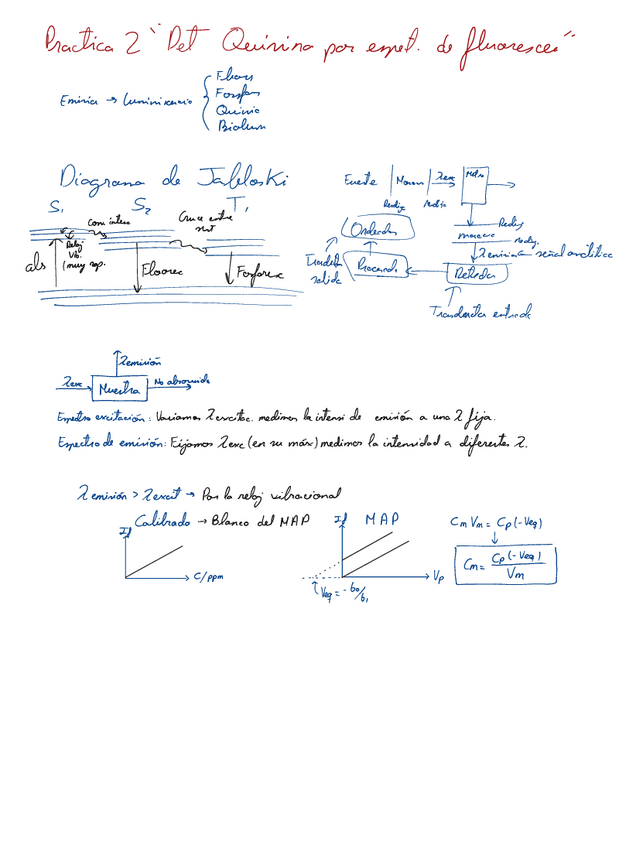 Practica 2 "Det Quinina por espet. de fluorescen"
Emisión → Luminiscencia
Fluores
Fosfor
Quimio
Biolum
Diagrama de Jabloski
S1 S2 T1
Con interna
Cruce entre sist
abs
Relaj Vib. (muy rap.
Fluoresc
Fosforesc
Fuente Monocr λexc
Rendija
λemisión señal analítica
Ordenador
Procesado
Detector
Transductor entrada
λemisión
λexc Muestra No absorvida
Espectro excitación: Variamos λexcitac. medimos la intensi de emisión a una λ fija.
Espectro de emisión: Fijamos λexc (en su máx) medimos la intensidad a diferentes λ.
λemisión > λexcit → Por la relaj vibracional
Calibrado → Blanco del MAP
If C/ppm
If MAP Vp
Veq = -b0/b1
Cm Vm = Cp(-Veq)
Cm = Cp(-Veq)/Vm